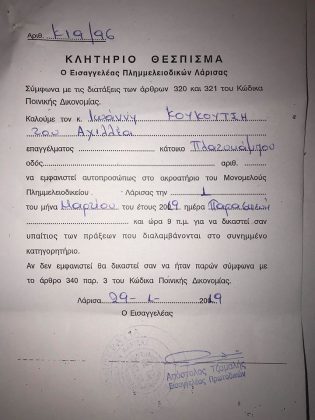 Αριθ. Κ19/96
ΚΛΗΤΗΡΙΟ ΘΕΣΠΙΣΜΑ
Ο Εισαγγελέας Πλημμελειοδικών Λάρισας
Σύμφωνα με τις διατάξεις των άρθρων 320 και 321 του Κώδικα
Ποινικής Δικονομίας.
Καλούμε τον κ. Ιωάννη ΚΟΥΚΟΥΤΣΗ
του Αχιλλέα
επαγγέλματος κάτοικο Πλατυκάμπου
οδός αριθ.
να εμφανιστεί αυτοπροσώπως στο ακροατήριο του Μονομελούς
Πλημμελειοδικείου Λάρισας την 1
του μήνα Μαρτίου του έτους 2019 ημέρα Παρασκευή
και ώρα 9 π.μ. για να δικαστεί σαν
υπαίτιος των πράξεων που διαλαμβάνονται στο συνημμένο
κατηγορητήριο.
Αν δεν εμφανιστεί θα δικαστεί σαν να ήταν παρών σύμφωνα με
το άρθρο 340 παρ. 3 του Κώδικα Ποινικής Δικονομίας.
Λάρισα 29-1- 2019
Ο Εισαγγελέας
Απόστολος Τζαμαλής
Εισαγγελέας Πρωτοδικών